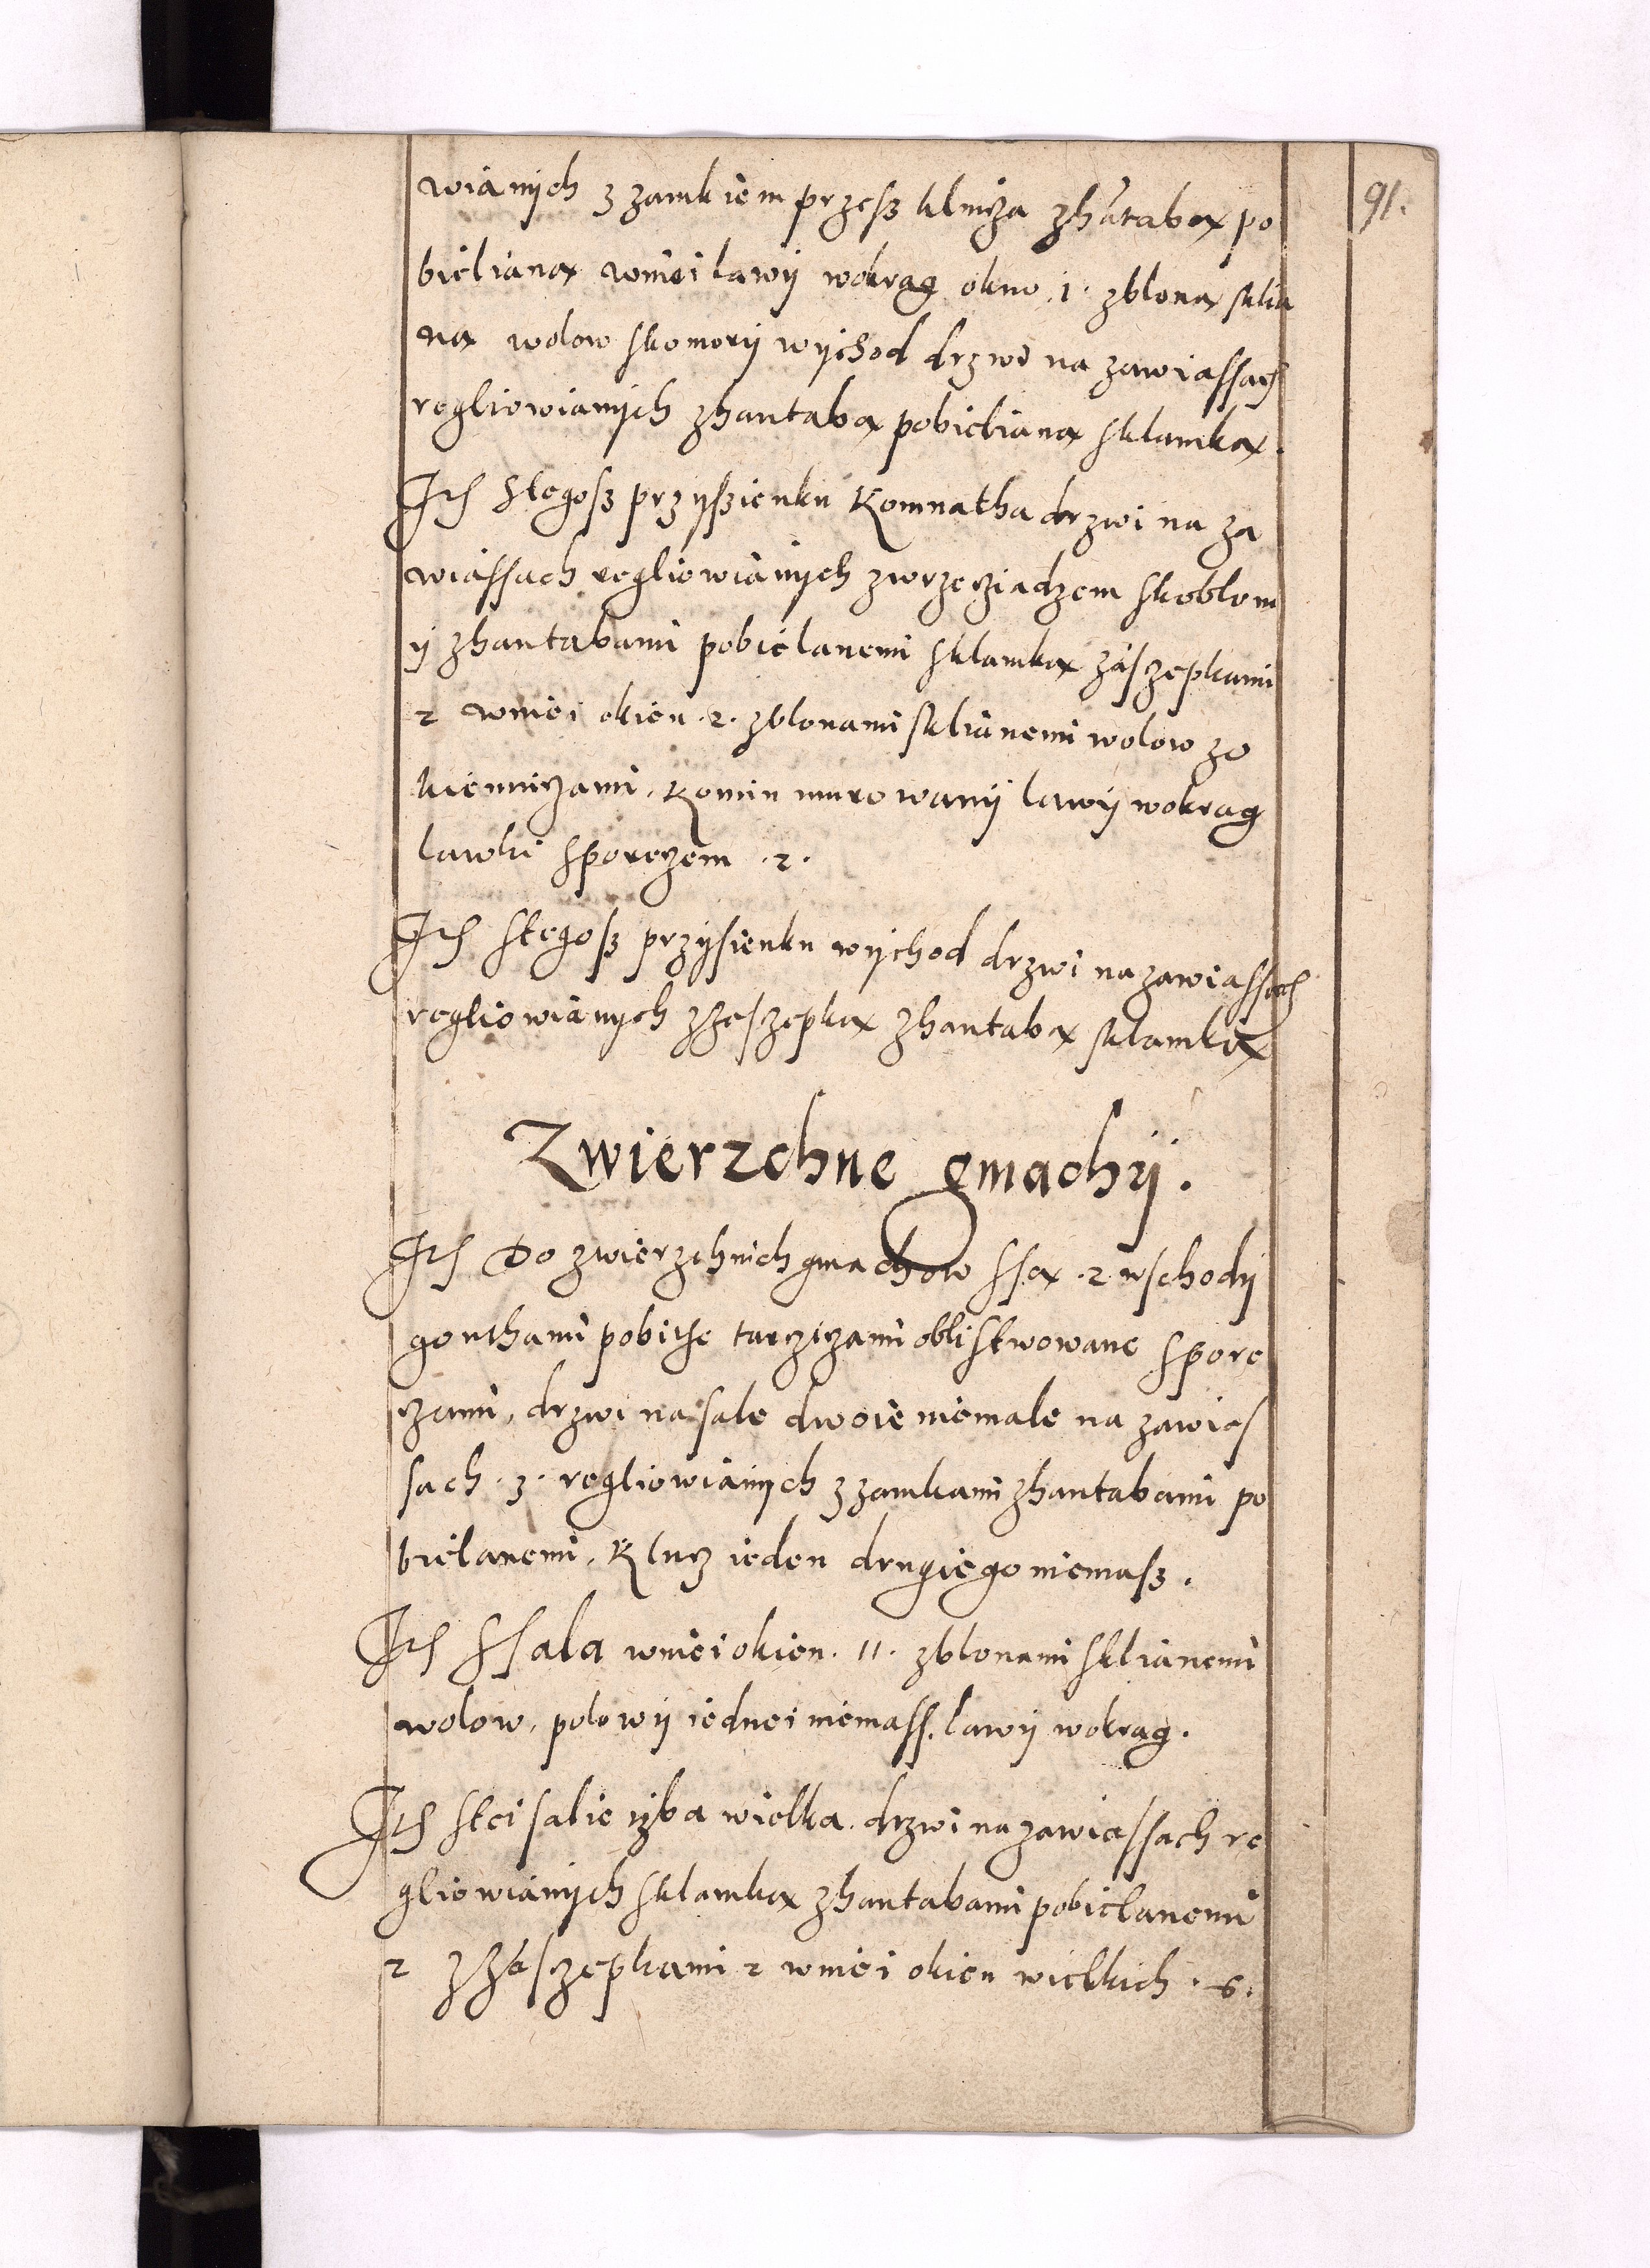 91.
wianÿch z zamkiem przesz klucza z hantabax po
bielianax wniei lawÿ wokrag okno .1. z blonax sklia
nax wolow skomorÿ wÿchod drzwi na zawiassach
regliowianÿch z hantabax pobielianax sklamkax.
Itſ stegosz przyszienku Komnatha drzwi na za
wiassach regliowianÿch zwrzecziadzem skoblom
ÿ z hantabami pobielanemi sklamkax zaszepkami
2 wniei okien .2. zblonami sklianemi wolow zo
kiennczami. Komin murowanÿ lawÿ wokrag
lawki sporeczem .2.
Itſ stegosz przysienku wÿchod drzwi na zawiassach
regliowianÿch zzaszepkax z hantabax sklamkax
Zwierzchne gmachÿ.
Itſ Do zwierzchnich gmachow ssax .2. wschodÿ
gonthami pobithe tarczczami oblistwowane spore
czami, drzwi na sale dwoie niemale na zawias
sach .3. regliowianÿch z zamkami z hantabami po
bielanemi, Klucz ieden drugiego niemasz.
Itſ Ssala wniei okien .11. zblonami sklianemi
wolow, polowÿ iednei niemass. lawÿ wokrag.
Itſ stei salie izba wielka. drzwi na zawiassach re
gliowianÿch sklamkax z hantabami pobielanemi
2 zzaszepkami 2 wniei okien wielkich .6.